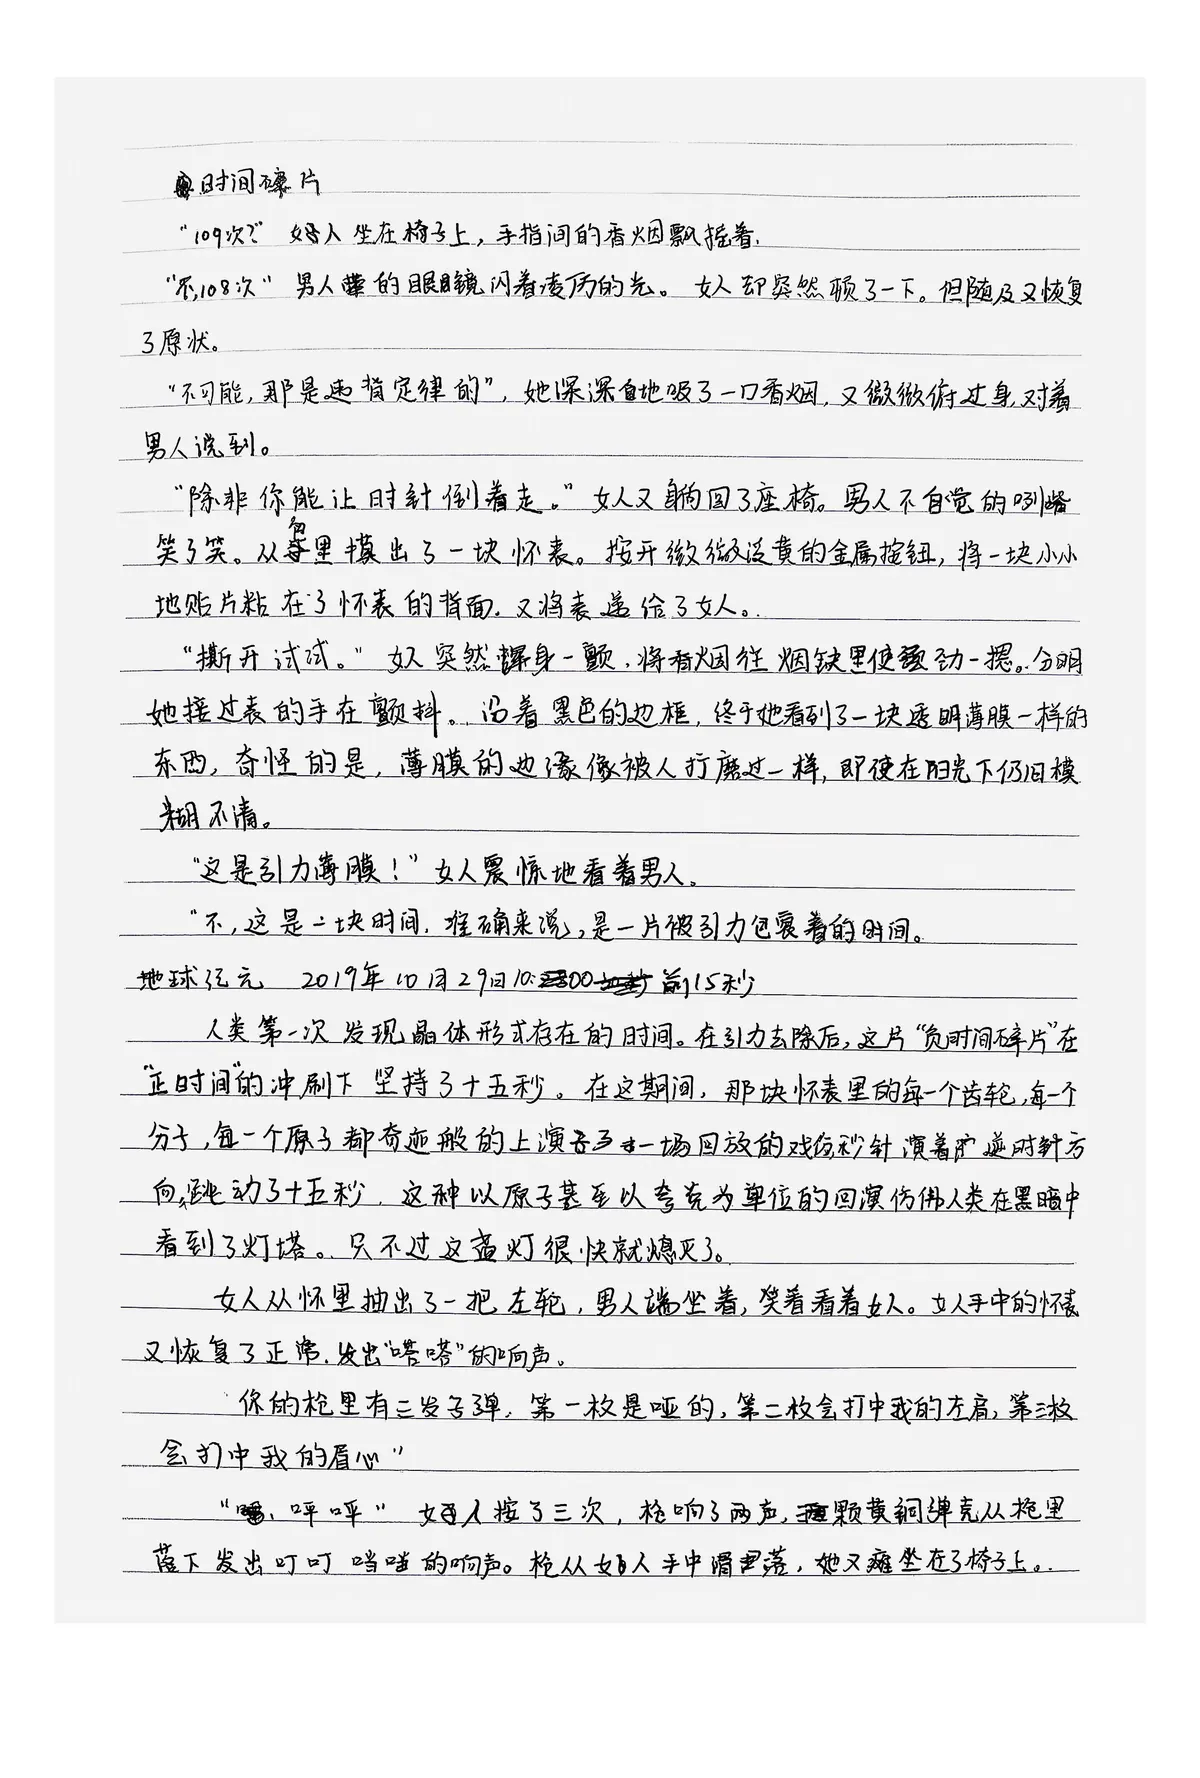 时间碎片
“109次？” 女人坐在椅子上，手指间的香烟飘摇着.
“不,108次” 男人的眼镜闪着凌厉的光。女人却突然顿了一下。但随及又恢复
了原状。
“不可能，那是违背定律的”，她深深地吸了一口香烟，又微微俯过身,对着
男人说到。
“除非你能让时针倒着走。”女人又躺回了座椅。男人不自觉的咧嘴
笑了笑。从包里摸出了一块怀表。按开微微泛黄的金属按钮，将一块小小
地贴片粘在了怀表的背面.又将表递给了女人。
“撕开试试。”女人突然浑身一颤.将香烟往烟缺里使劲一摁。分明
她接过表的手在颤抖。沿着黑色的边框，终于她看到了一块透明薄膜一样的
东西，奇怪的是，薄膜的边缘像被人打磨过一样，即使在阳光下仍旧模
糊不清。
“这是引力薄膜！”女人震惊地看着男人.
“不，这是一块时间.准确来说，是一片被引力包裹着的时间。
地球纪元 2019年10月29日10:00 前15秒
人类第一次发现晶体形式存在的时间。在引力去除后，这片“负时间碎片”在
“正时间”的冲刷下坚持了十五秒。在这期间，那块怀表里的每一个齿轮，每一个
分子，每一个原子都奇迹般的上演了一场回放的戏份,秒针演着逆时针方
向,跳动了十五秒.这种以原子甚至以夸克为单位的回演仿佛人类在黑暗中
看到了灯塔。只不过这盏灯很快就熄灭了。
女人从怀里抽出了一把左轮，男人端坐着，笑着看着女人。女人手中的怀表
又恢复了正常.发出“嗒嗒”的响声。
你的枪里有三发子弹.第一枚是哑的，第二枚会打中我的左肩，第三枚
会打中我的眉心”
“ 呯呯” 女人按了三次，枪响了两声，颗黄铜弹壳从枪里
落下发出叮叮当当的响声。枪从女人手中滑落，她又瘫坐在了椅子上。